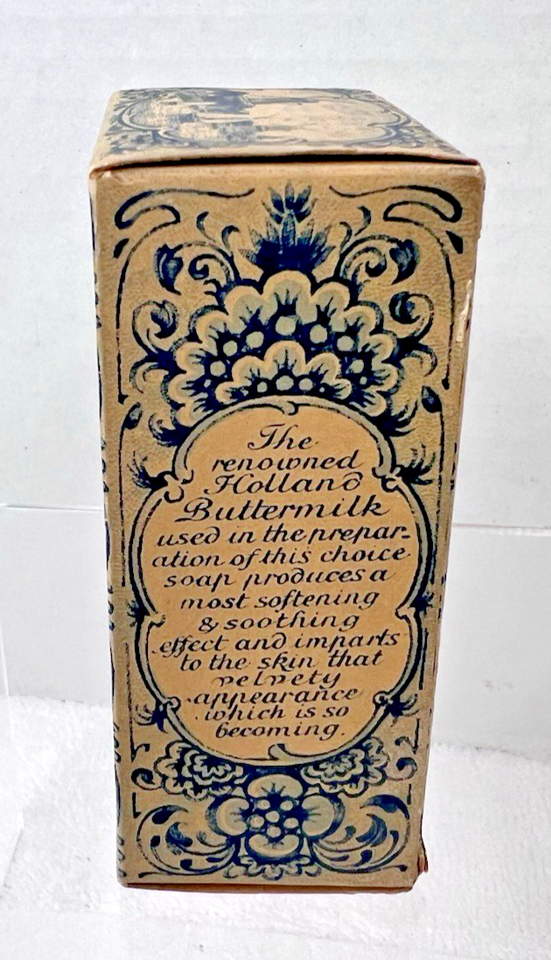 The
renowned
Holland
Buttermilk
used in the prepar-
ation of this choice
soap produces a
most softening
& soothing
effect and imparts
to the skin that
velvety
appearance
which is so
becoming.